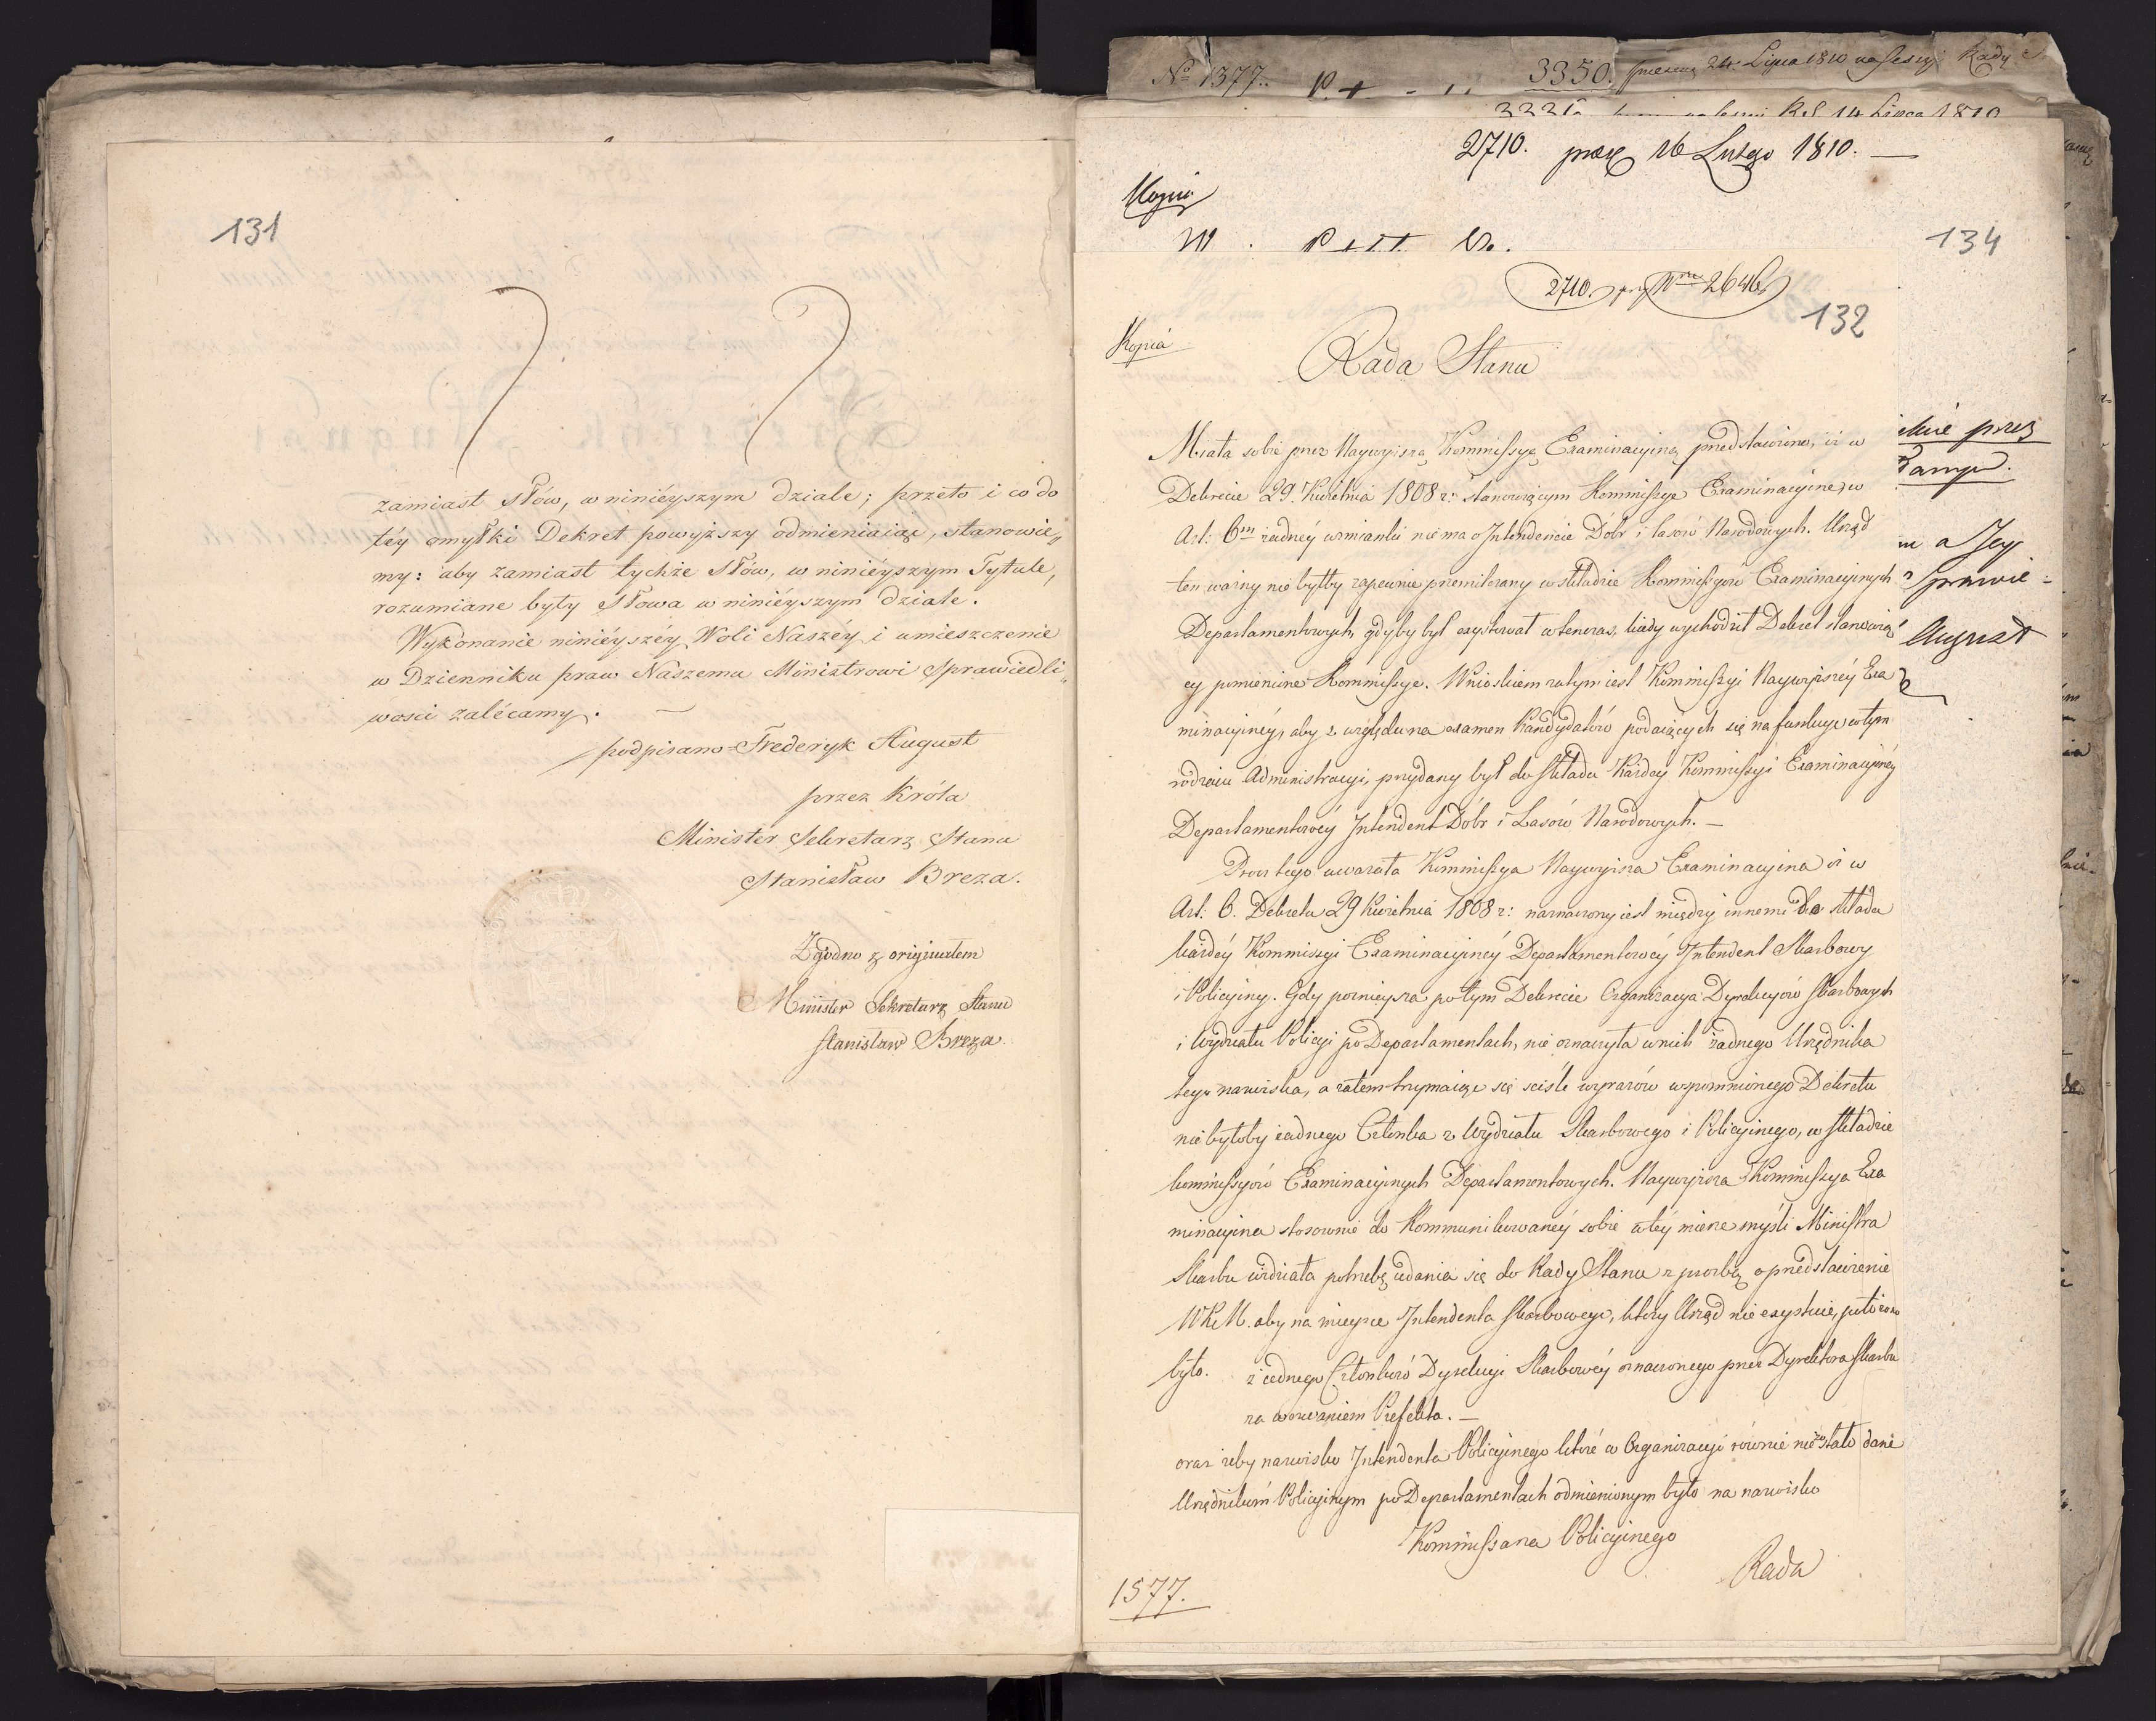 131
zamiast słów, w niniéyszym dziale; przeto i co do
téy omyłki Dekret powyższy odmieniaiąc, stanowie„
my: aby zamiast tychże słów, w niniéyszym Tytule,
rozumiane były słowa w niniéyszym dziale.
Wykonanie niniéyszéy Woli Naszéy i umieszczenie
w Dzienniku praw Naszemu Ministrowi Sprawiedli„
wosci zalécamy.
podpisano Frederyk August
przez Króla
Minister Sekretarz Stanu
Stanisław Breza.
Zgodno z originałem
Minister Sekretarz Stanu
Stanisław Breza.
No 1377.
3350. 24 Lipca 1810 na sessyi Rady
14 Lipca 1810
2710. praes 16 Lutego 1810. —
Kopia
134
2710. przy Nrze 2646
132
Kopia
Rada Stanu
Miała sobie przez Naywyższą Kommissyę Examinacyiną przedstawiono, iż w
Dekrecie 29. Kwietnia 1808 r: stanowiącym Kommissye Examinacyine, w
Art: 6m żadnéy wzmianki nie ma o Intendencie Dóbr i Lasów Narodowych. Urząd
ten ważny nie byłby zapewnie przemilczany w składzie Kommissyow Examinacyinych
Departamentowych, gdyby był exystował wtenczas, kiedy wychodził Dekret stanowią
cy pomienine Kommissye. Wnioskiem zatym iest Kommissyi Naywyższéy Exa
minacyinéy, aby z względu na examen Kandydatów podaiących się na funkcye w tym
rodzaiu Administracyi, przydany był do składu Każdey Kommissyi Examinacyinéy
Departamentowéy Intendent Dóbr i Lasów Narodowych. —
Procz tego uważała Kommissya Naywyższa Examinacyina iż w
Art: 6. Dekretu 29 Kwietnia 1808 r: naznaczony iest między innemi do składu
każdéy Kommissyi Examinacyinéy Departamentowéy Intendent Skarbowy
i Policyiny. Gdy poznieysza po tym Dekrecie Organizacya Dyrekcyów Skarbowych
i Wydziału Policyi po Departamentach, nie oznaczyła w nich żadnego Urzędnika
tego nazwiska, a zatem trzymaiąc się sciśle wyrazów wspomnionego Dekretu
nie byłoby żadnego Członka z Wydziału Skarbowego i Policyinego, w składzie
kommissyów Examinacyinych Departamentowych. Naywyższa Kommissya Exa
minacyina stosownie do Kommunikowanéy sobie w téy mierze myśli Ministra
Skarbu widziała potrzebę udania się do Rady Stanu z prozbą o przedstawienie
WKM. aby na mieysce Intendenta Skarbowego, który Urząd nie exystuie, położono
było. z iednego Członków Dyrekcyi Skarbowéy oznaczonego przez Dyrektora Skarbu
za wezwaniem Prefekta. —
oraz żeby nazwisko Intendenta Policyinego które w Organizacyi równie nie zostało dane
Urzędnikom Policyinym po Departamentach odmienionym było na nazwisko
Kommissarza Policyinego
Rada
1577.
August